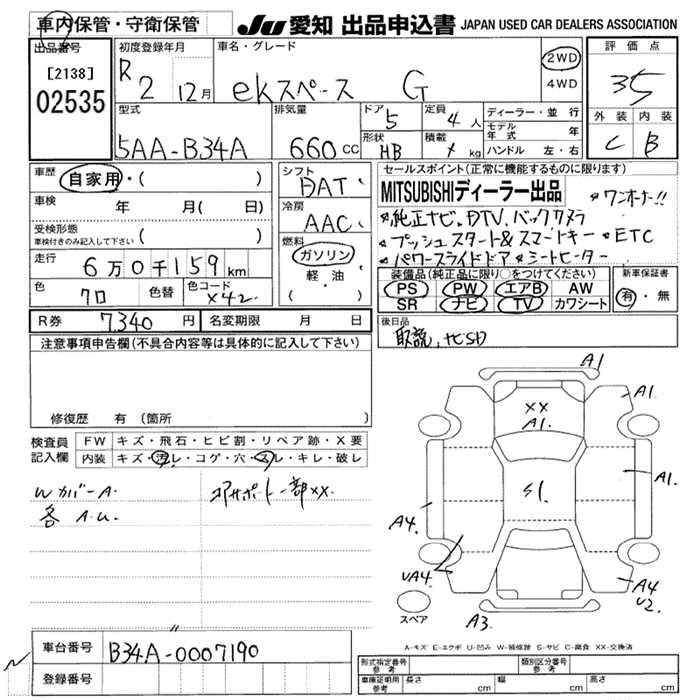 車内保管・守衛保管
JU 愛知 出品申込書 JAPAN USED CAR DEALERS ASSOCIATION
出品番号
[2138]
02535
初度登録年月
R2 12月
車名・グレード
ekスペース G
2WD
4WD
評価点
3.5
外装 内装
C B
型式
5AA-B34A
排気量
660 CC
ドア
5
形状
HB
定員
4 人
積載
kg
ディーラー・並行
モデル年式 年
ハンドル 左・右
車歴
自家用・( )
車検 年 月( 日)
受検形態
車検付きのみ記入して下さい ( )
走行 6万0千159km
色 クロ 色替 色コード X42
シフト
DAT
冷房
AAC
燃料
ガソリン
軽・油
( )
セールスポイント(正常に機能するものに限ります)
MITSUBISHIディーラー出品 *ワンオーナー!!
*純正ナビ.DTV.バックカメラ
*プッシュスタート&スマートキー *ETC
*パワースライドドア *シートヒーター
装備品(純正品に限り○をつけてください)
PS PW エアB AW
SR ナビ TV カワシート
新車保証書
有・無
R券 7,340円 名変期限 月 日
後日品
取説,ナビSD
注意事項申告欄(不具合内容等は具体的に記入して下さい)
修復歴 有(箇所 )
検査員記入欄
FW キズ・飛石・ヒビ割・リペア跡・X要
内装 キズ・汚レ・コゲ・穴・スレ・キレ・破レ
WカバーA.
各A.U.
コアサポート一部XX.
A1
A1.
XX
A1.
A1.
S1.
A4.
UA4.
A4
U2.
A3.
スペア
A-キズ E-エクボ U-凹み W-補修跡 S-サビ C-腐食 XX-交換済
車台番号 B34A-0007190
登録番号
形式指定番号 参考
類別区分番号 参考
車庫証明用 参考 長さ cm 幅 cm 高さ cm